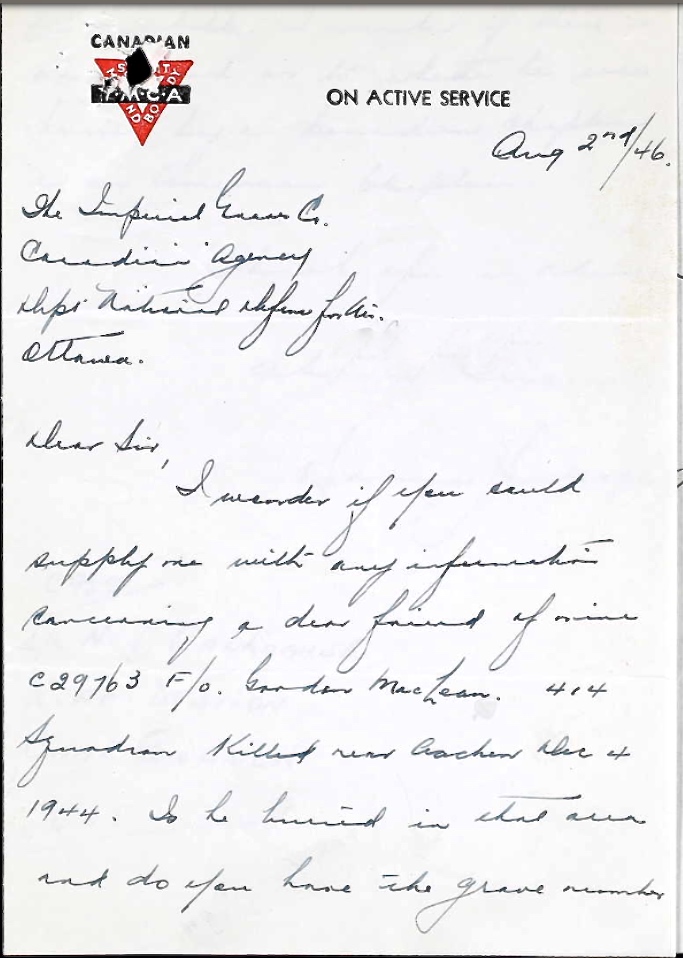 CANADIAN
Y.M.C.A
ON ACTIVE SERVICE
Aug 2nd/46.
The Imperial Graves Co.
Canadian Agency
Dept National Defense for Air.
Ottawa.
Dear Sir,
I wonder if you could
supply me with any information
concerning a dear friend of mine
C29763 F/O. Gordon MacLean. 414
Squadron Killed near Aachen Dec 4
1944. Is he buried in that area
and do you have the grave number